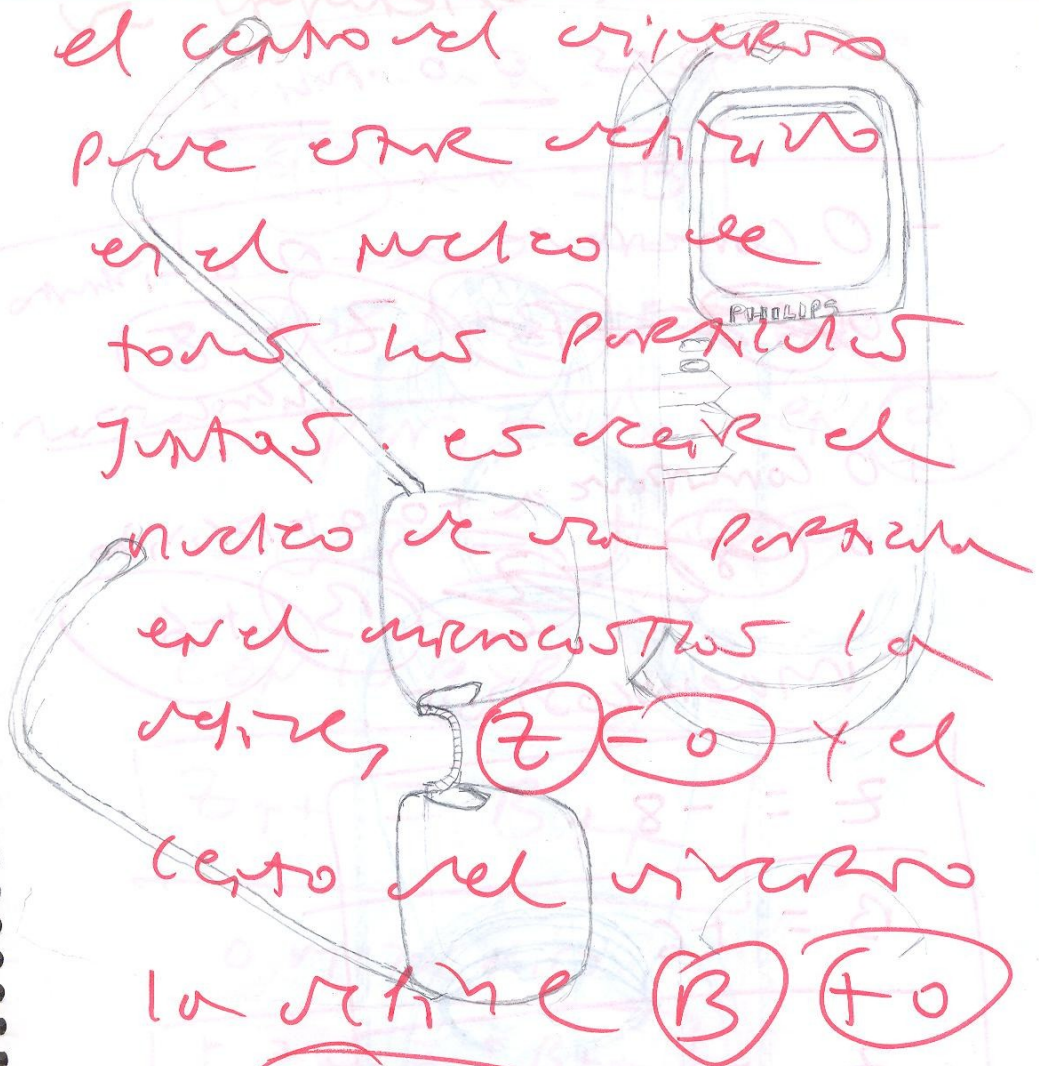 el centro del universo
puede estar definido
en el nucleo de
PHILIPS
todas las particulas
Juntas. es decir el
nucleo de una particula
en el microcosmos la
define Z -0 y el
centro del universo
la define B +0